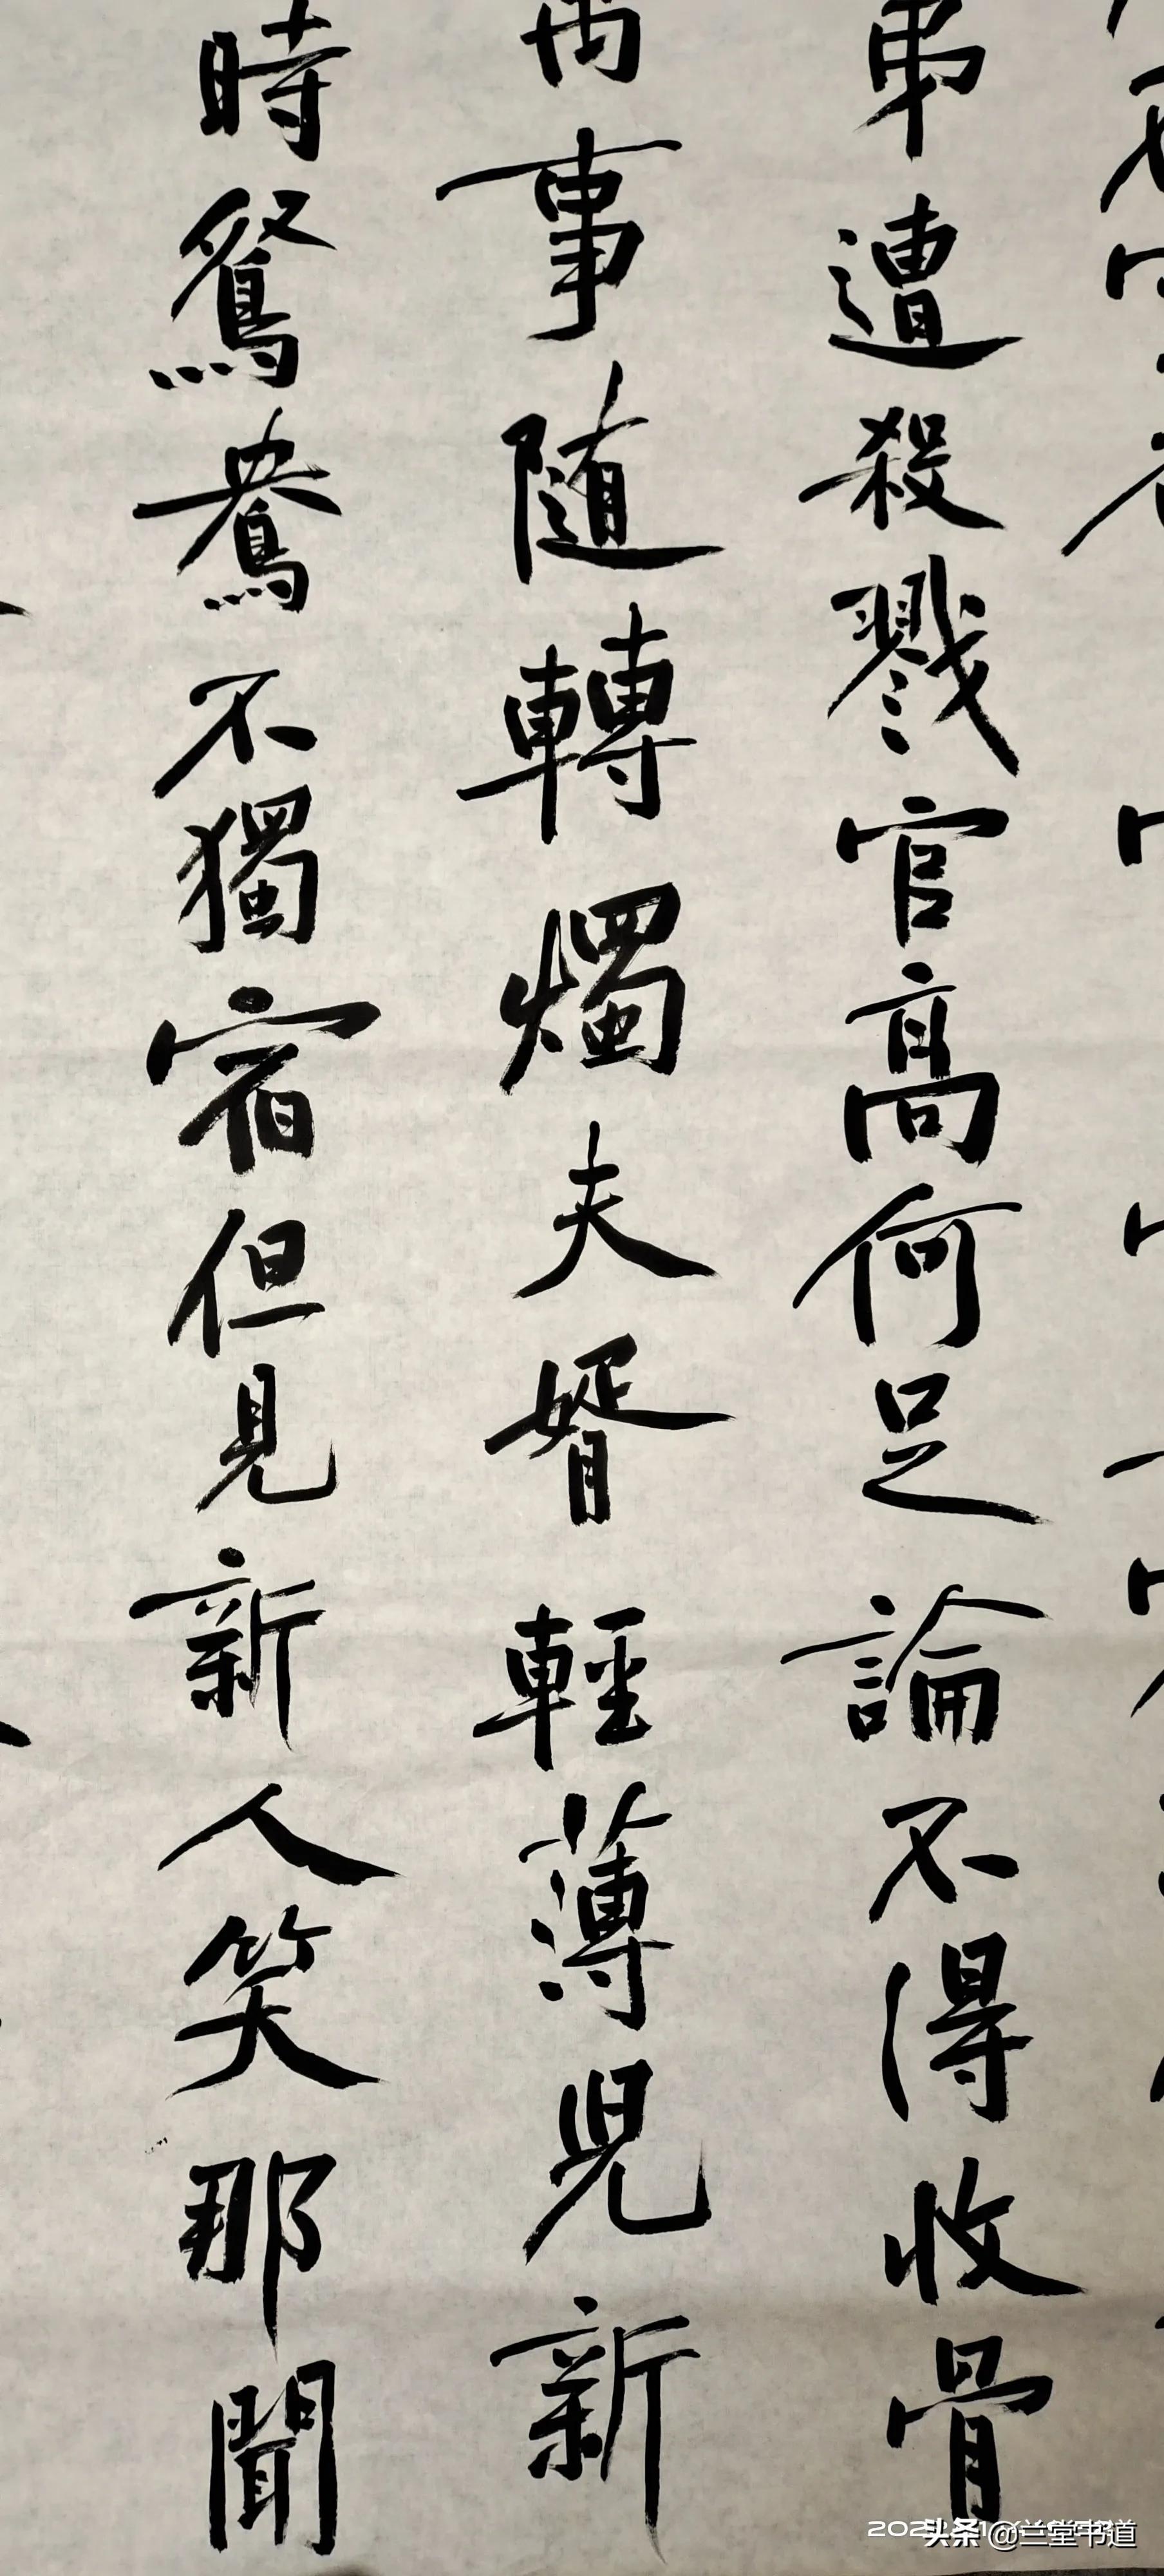 弟遭殺戮官高何足論不得收骨
萬事随轉燭夫婿輕薄兒新
時鴛鴦不獨宿但見新人笑那聞
头条 @兰堂书道